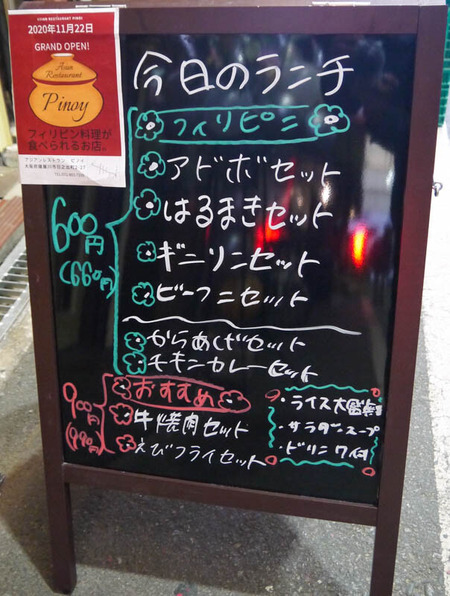 ASIAN RESTAURANT PINOY
2020年11月22日
GRAND OPEN!
Asian
Restaurant
Pinoy
フィリピン料理が
食べられるお店。
アジアンレストラン ピノイ
今日のランチ
フィリピン
アドボセット
はるまきセット
ギニリンセット
ビーフンセット
600円
(660円)
からあげセット
チキンカレーセット
おすすめ
牛焼肉セット
えびフライセット
900円
(990円)
・ライス大盛無料
・サラダ・スープ
・ドリンク付